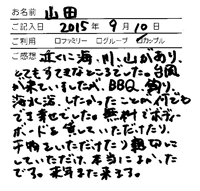 お名前 山田
ご記入日 2015年9月10日
ご利用 □ファミリー □グループ ☑カップル
ご感想 近くに海、川、山があり、
とてもすてきなところでした。台風
が来ていましたが、BBQ、釣り、
海水浴、したかったことが何でも
でき幸せでした。無料でボディー
ボードを貸していただけたり、
干物をいただけたり親切に
していただけ、本当によかった
です。来年また来ます。